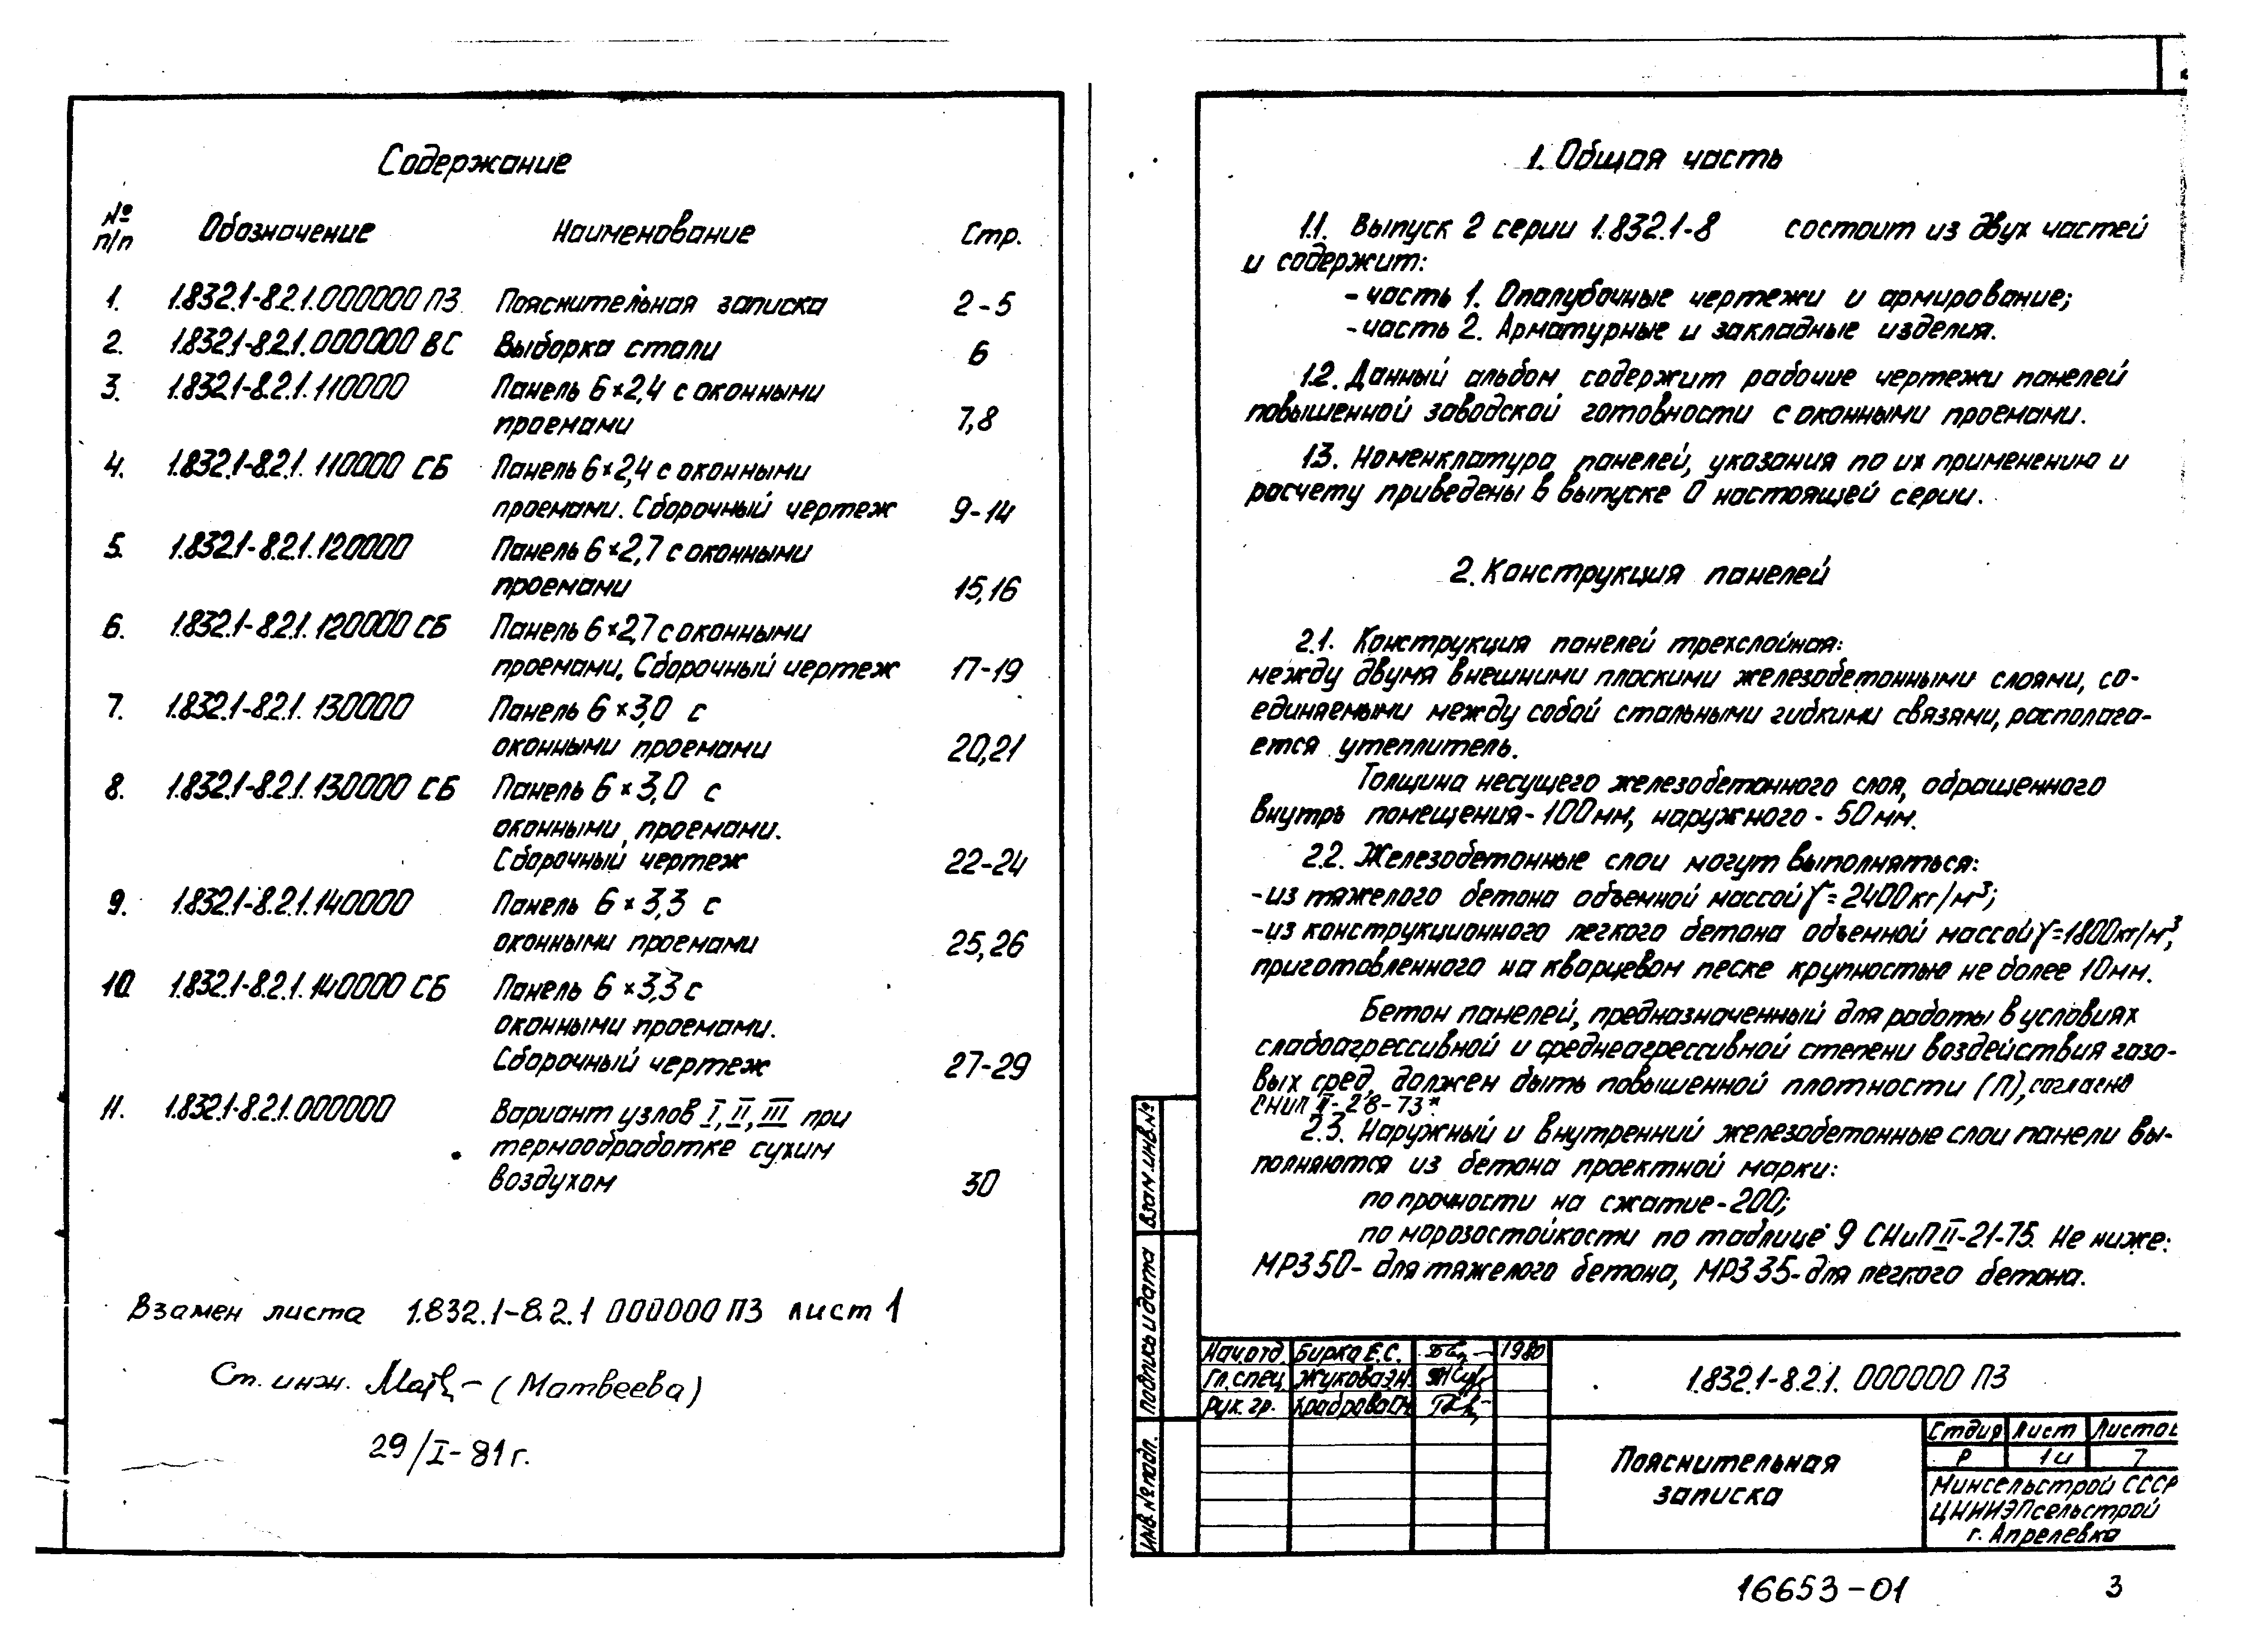 Содержание
№ п/п Обозначение Наименование Стр.
1. 1.832.1-8.2.1.000000 ПЗ Пояснительная записка 2-5
2. 1.832.1-8.2.1.000000 ВС Выборка стали 6
3. 1.832.1-8.2.1.110000 Панель 6×2,4 с оконными
проемами 7,8
4. 1.832.1-8.2.1. 110000 СБ Панель 6×2,4 с оконными
проемами. Сборочный чертеж 9-14
5. 1.832.1-8.2.1.120000 Панель 6×2,7 с оконными
проемами 15,16
6. 1.832.1-8.2.1. 120000 СБ Панель 6×2,7 с оконными
проемами. Сборочный чертеж 17-19
7. 1.832.1-8.2.1. 130000 Панель 6×3,0 с
оконными проемами 20,21
8. 1.832.1-8.2.1.130000 СБ Панель 6×3,0 с
оконными проемами.
Сборочный чертеж 22-24
9. 1.832.1-8.2.1.140000 Панель 6×3,3 с
оконными проемами 25,26
10. 1.832.1-8.2.1.140000 СБ Панель 6×3,3 с
оконными проемами.
Сборочный чертеж 27-29
11. 1.832.1-8.2.1.000000 Вариант узлов I, II, III при
термообработке сухим
воздухом 30
Взамен листа 1.832.1-8.2.1 000000 ПЗ лист 1
Ст. инж. (Матвеева)
29/I-81 г.
1. Общая часть
1.1. Выпуск 2 серии 1.832.1-8 состоит из двух частей
и содержит:
- часть 1. Опалубочные чертежи и армирование;
- часть 2. Арматурные и закладные изделия.
1.2. Данный альбом содержит рабочие чертежи панелей
повышенной заводской готовности с оконными проемами.
1.3. Номенклатура панелей, указания по их применению и
расчету приведены в выпуске 0 настоящей серии.
2. Конструкция панелей
2.1. Конструкция панелей трехслойная:
между двумя внешними плоскими железобетонными слоями, со-
единяемыми между собой стальными гибкими связями, располага-
ется утеплитель.
Толщина несущего железобетонного слоя, обращенного
внутрь помещения - 100 мм, наружного - 50 мм.
2.2. Железобетонные слои могут выполняться:
- из тяжелого бетона объемной массой γ=2400 кг/м³;
- из конструкционного легкого бетона объемной массой γ=1800 кг/м³,
приготовленного на кварцевом песке крупностью не более 10 мм.
Бетон панелей, предназначенный для работы в условиях
слабоагрессивной и среднеагрессивной степени воздействия газо-
вых сред, должен быть повышенной плотности (П), согласно
СНиП II-28-73*.
2.3. Наружный и внутренний железобетонные слои панели вы-
полняются из бетона проектной марки:
по прочности на сжатие - 200;
по морозостойкости по таблице 9 СНиП II-21-75. Не ниже:
МРЗ 50 - для тяжелого бетона, МРЗ 35 - для легкого бетона.
Взам. инв. №
Подпись и дата
Инв. № подл.
Нач. отд. Бирка Е.С. 1980
Гл. спец. Жукова Э.Н.
Рук. гр.
1.832.1-8.2.1. 000000 ПЗ
Пояснительная
записка
Стдия Лист Листов
Р 1и 7
Минсельстрой СССР
ЦНИИЭПсельстрой
г. Апрелевка
16653-01 3